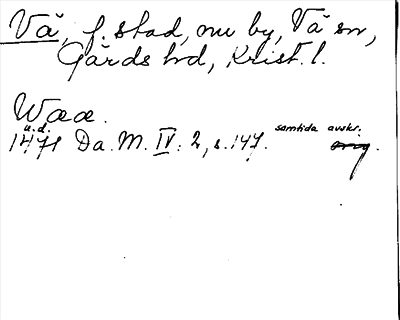 Vä, f. stad, nu by, Vä sn,
Gärds hd, Krist. l.
Waa.
u.d.
1471 Da. M. IV: 2, s. 147. samtida avskr.
orig.